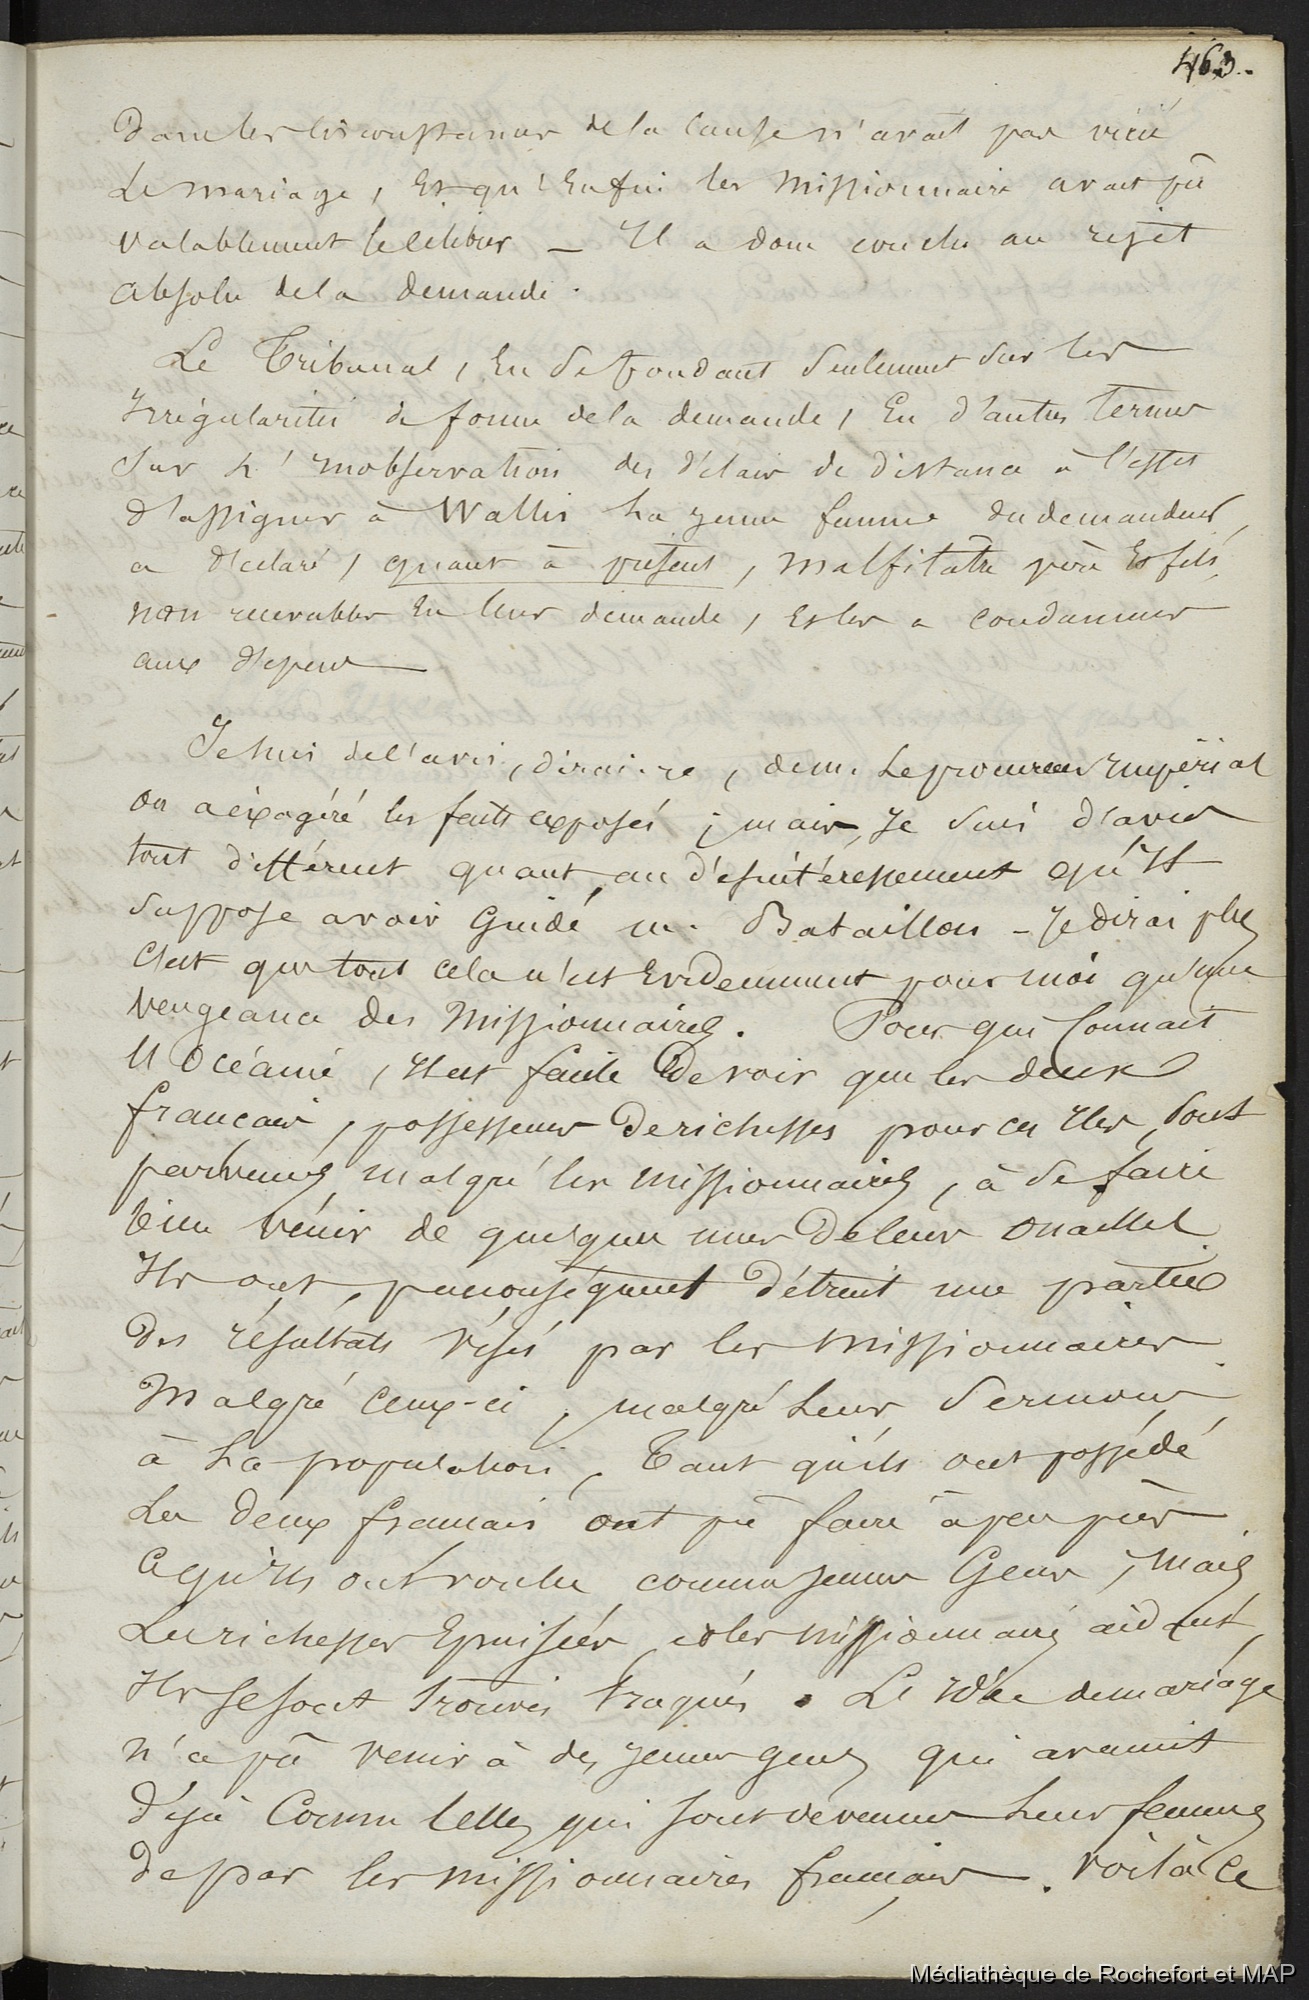 463.
dans les circonstances de la cause n'avait pas vicié
le mariage, et qu'enfin les missionnaire avait pû
valablement le célébrer — Il a donc conclu au rejet
absolu de la demande.
Le Tribunal, en se fondant seulement sur les
Irrégularités de forme de la demande, En d'autres termes
sur L'inobservation des délais de distance à l'effet
d'assigner à Wallis La jeune femme du demandeur,
a déclaré, quant à présent, Malfilâtre père et fils
non recevables En leur demande, et les a condamnés
aux dépens —
Je suis de l'avis, dirai-je, de m. Le procureur Impérial
on a exagéré les faits exposés ; mais, Je suis d'avis
tout différent quant au désintéressement qu'Il
suppose avoir Guidé m. Bataillon - Je dirai plus
c'est que tout cela n'est Evidemment pour moi qu'une
vengeance des Missionnaires. Pour qui Connait
l'Océanie, Il est facile de voir que les deux
français, possesseurs de richesses pour ces Iles, sont
parvenus malgré les missionnaires, à se faire
bien vénir de quelques unes de leurs ouailles
Ils ont, par conséquent détruit une partie
des résultats visés par les missionnaires
Malgré ceux-ci, malgré Leurs Sermons
à La population, Tant qu'ils ont possédé
Les deux français ont pû faire à peu près
ce qu'ils ont voulu comme jeunes Gens ; mais
Les richesses Epuisées, et les missionnaires aidant,
Ils se sont trouvés traqués. L'Idée de mariage
n'a pû venir à des jeunes gens qui avaient
déjà Connu celles qui sont devenues Leurs femmes
de par les missionnaires français. Voilà ce
Médiathèque de Rochefort et MAP